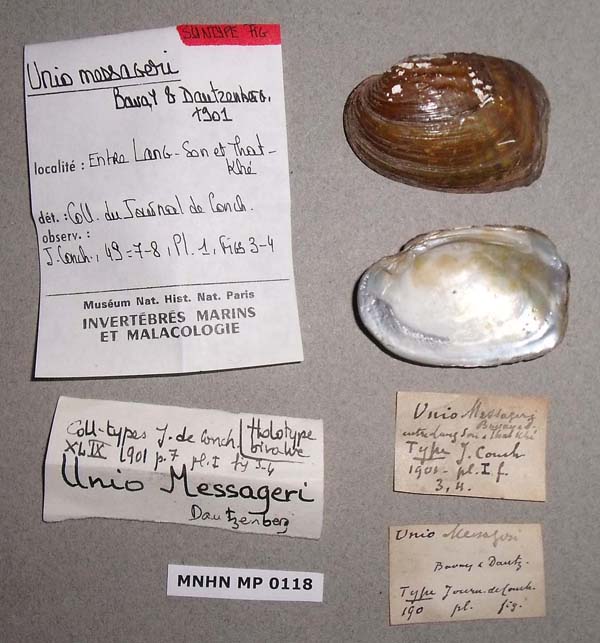 SYNTYPE FIG
Unio messageri
Bavay & Dautzenberg,
1901
localité : Entre Lang-Son et That-
Khé
dét. : Coll. du Journal de Conch.
observ. :
J. Conch., 49 : 7-8, Pl. 1, Figs 3-4
Muséum Nat. Hist. Nat. Paris
INVERTÉBRÉS MARINS
ET MALACOLOGIE
Coll-types J. de Conch. Holotype
XLIX 1901 p. 7 pl. I fg 3-4 bivalve
Unio Messageri
Dautzenberg
MNHN MP 0118
Unio Messageri
Bavay &
entre Lang Son & That Khé
Type J. Conch
1901 - pl. I f.
3, 4.
Unio Messageri
Bavay & Dautz.
Type Journ. de Conch.
190 pl. fig.